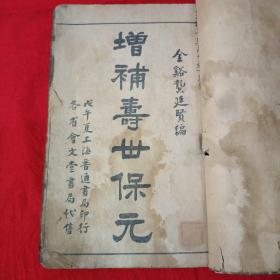 金谿龔廷賢編
增補壽世保元
戊午夏上海普通書局印行
各省會文堂書局代售